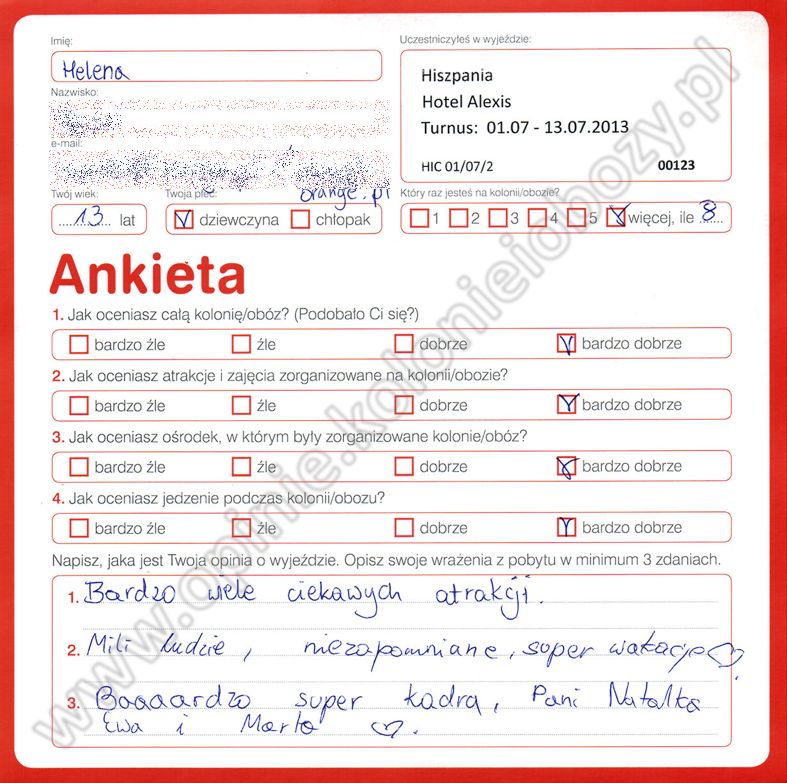 Imię:
Helena
Nazwisko:
e-mail:
orange.pl
Twój wiek:
13 lat
Twoja płeć:
dziewczyna chłopak
Uczestniczyłeś w wyjeździe:
Hiszpania
Hotel Alexis
Turnus: 01.07 - 13.07.2013
HIC 01/07/2 00123
Który raz jesteś na kolonii/obozie?
1 2 3 4 5 więcej, ile 8
Ankieta
1. Jak oceniasz całą kolonię/obóz? (Podobało Ci się?)
bardzo źle źle dobrze bardzo dobrze
2. Jak oceniasz atrakcje i zajęcia zorganizowane na kolonii/obozie?
bardzo źle źle dobrze bardzo dobrze
3. Jak oceniasz ośrodek, w którym były zorganizowane kolonie/obóz?
bardzo źle źle dobrze bardzo dobrze
4. Jak oceniasz jedzenie podczas kolonii/obozu?
bardzo źle źle dobrze bardzo dobrze
Napisz, jaka jest Twoja opinia o wyjeździe. Opisz swoje wrażenia z pobytu w minimum 3 zdaniach.
1. Bardzo wiele ciekawych atrakcji.
2. Mili ludzie, niezapomniane, super wakacje
3. Baaaardzo super kadra, Pani Natalka
Ewa i Marta
www.opinie.kolonieiobozy.pl